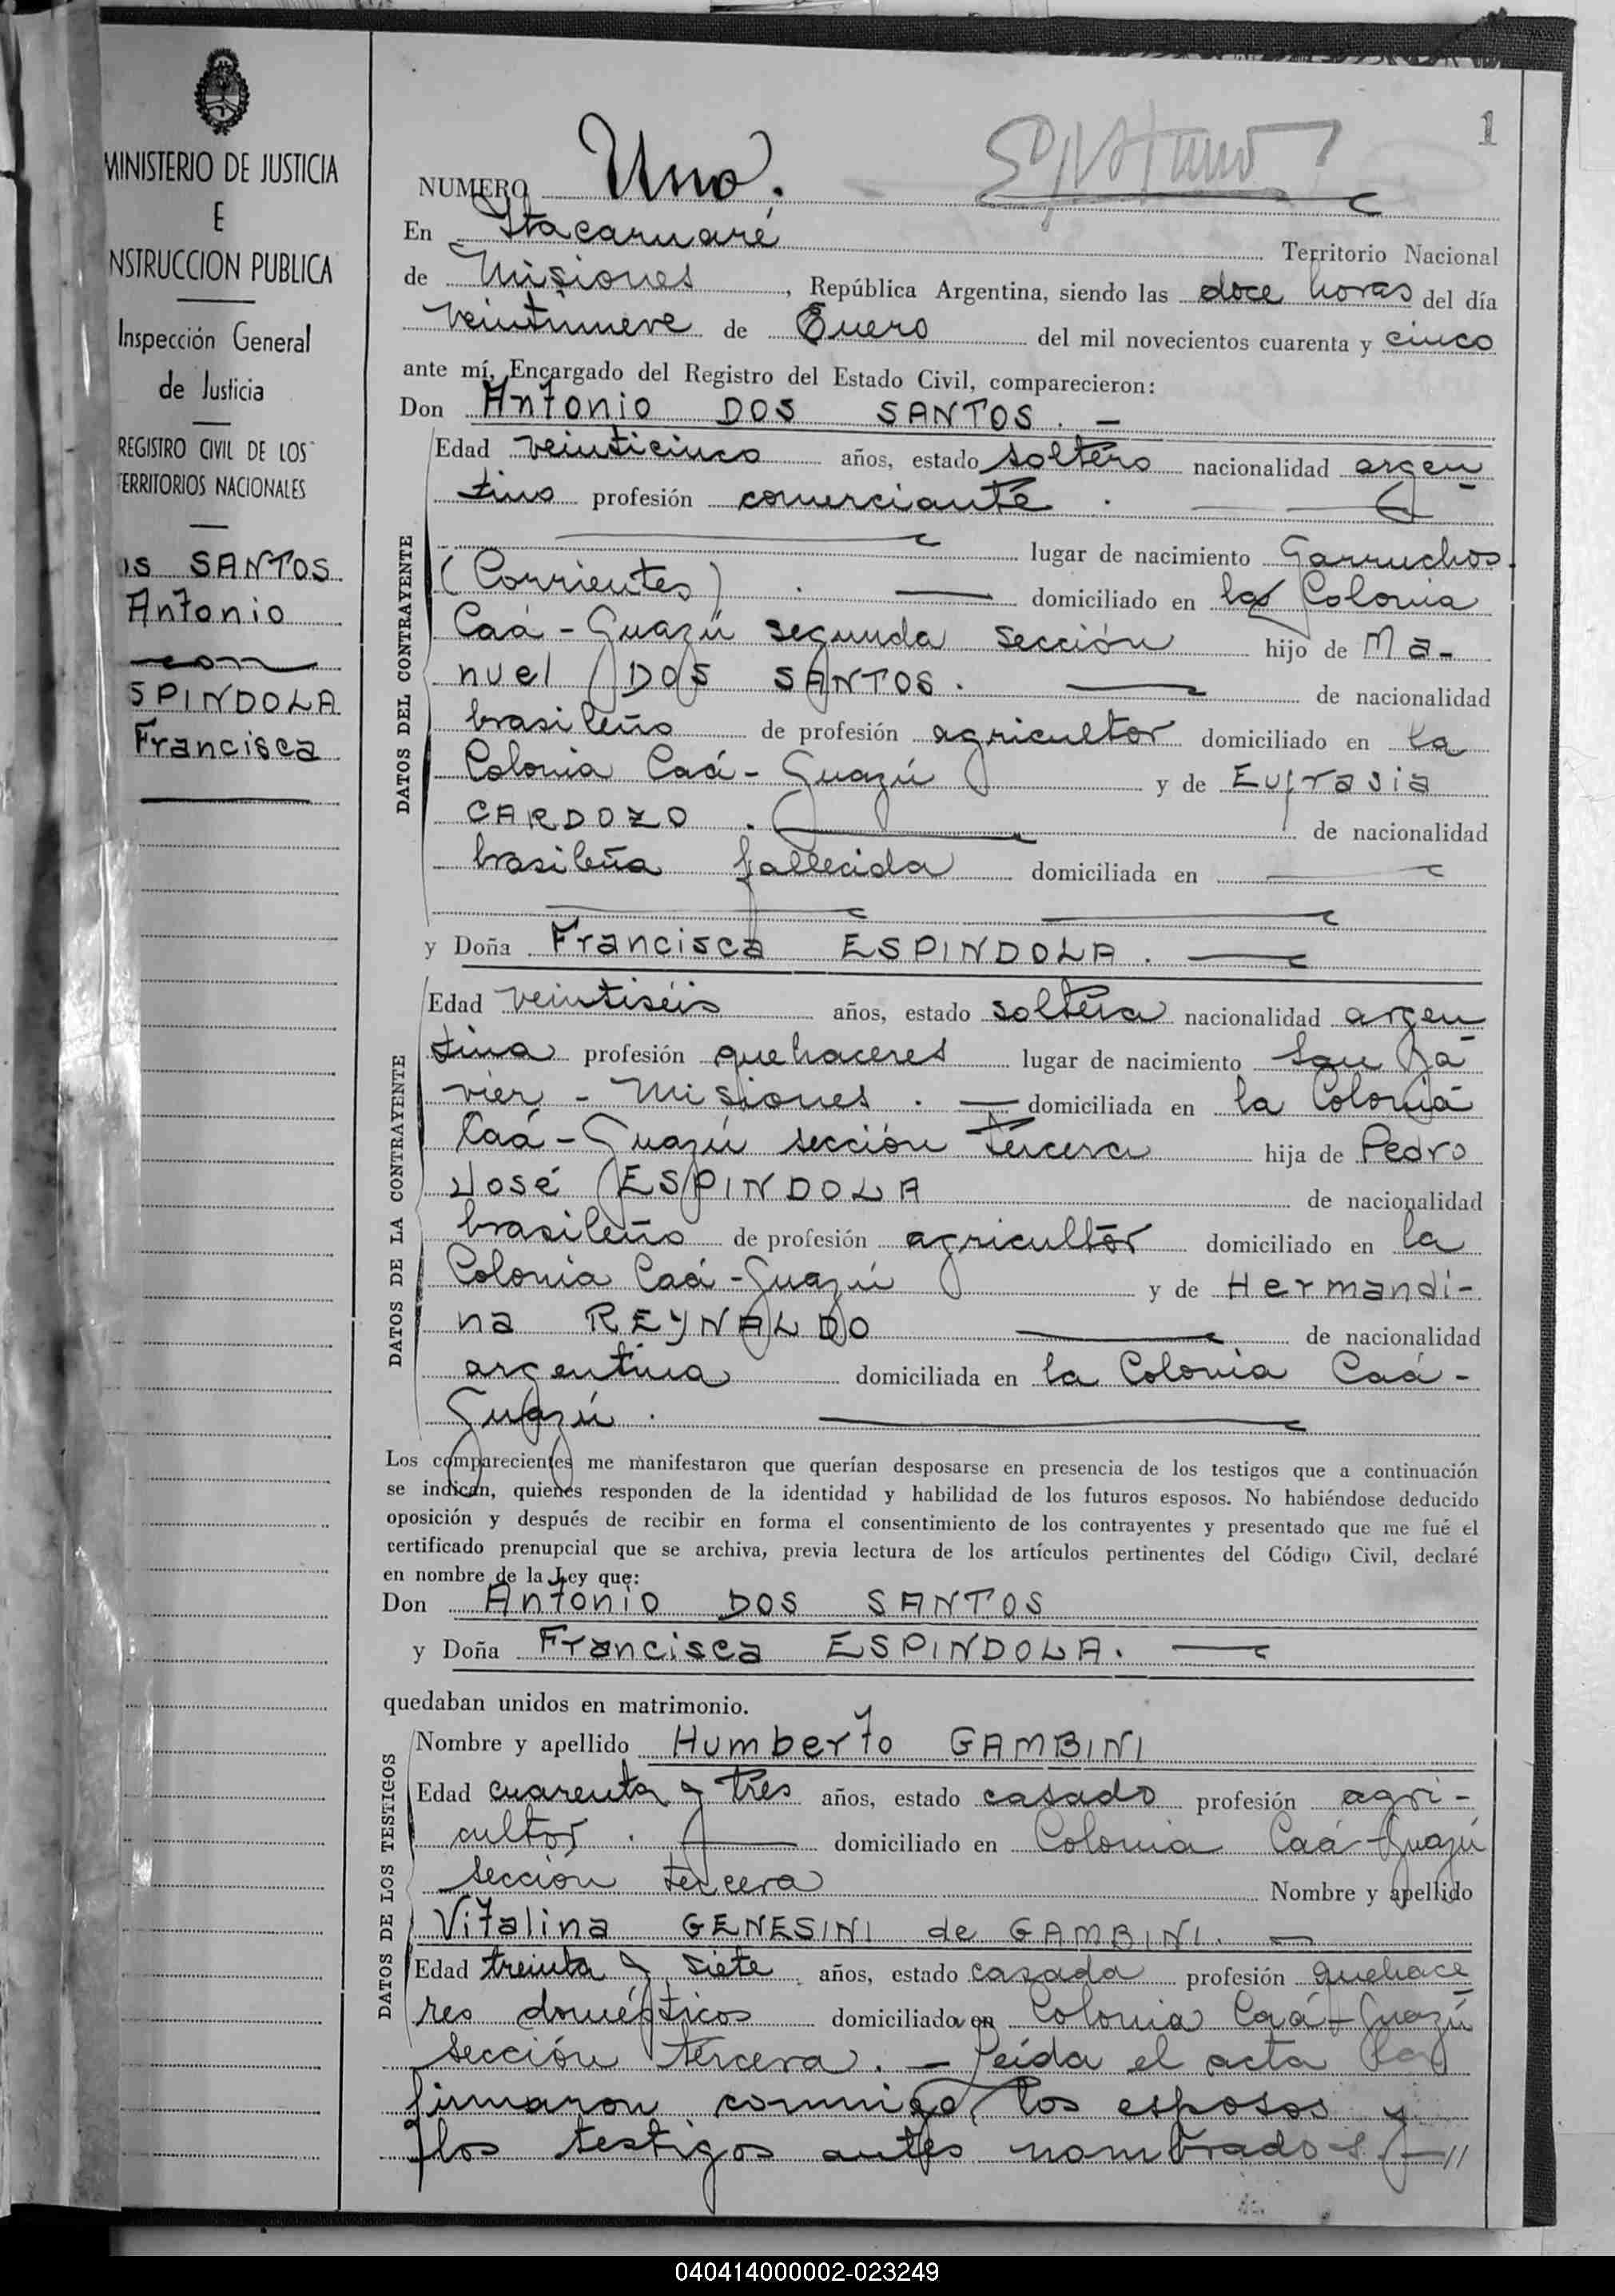 1
MINISTERIO DE JUSTICIA
E
NSTRUCCION PUBLICA
Inspección General
de Justicia
REGISTRO CIVIL DE LOS
TERRITORIOS NACIONALES
OS SANTOS
Antonio
con
SPINDOLA
Francisca
NUMERO Uno.
En Itacaruaré Territorio Nacional
de Misiones, República Argentina, siendo las doce horas del día
veintinueve de Enero del mil novecientos cuarenta y cinco
ante mí, Encargado del Registro del Estado Civil, comparecieron:
Don Antonio DOS SANTOS. —
DATOS DEL CONTRAYENTE
Edad veinticinco años, estado soltero nacionalidad argen
tino profesión comerciante.
lugar de nacimiento Garruchos
(Corrientes). — domiciliado en la Colonia
Caá-Guazú segunda sección hijo de Ma-
nuel DOS SANTOS. — de nacionalidad
brasileño de profesión agricultor domiciliado en la
Colonia Caá-Guazú y de Eufrasia
CARDOZO. — de nacionalidad
brasileña fallecida domiciliada en —
y Doña Francisca ESPINDOLA. —
DATOS DE LA CONTRAYENTE
Edad veintiséis años, estado soltera nacionalidad argen
tina profesión quehaceres lugar de nacimiento San Ja
vier - Misiones. — domiciliada en la Colonia
Caá-Guazú sección tercera hija de Pedro
José ESPINDOLA de nacionalidad
brasileño de profesión agricultor domiciliado en la
Colonia Caá-Guazú y de Hermandi-
na REYNALDO — de nacionalidad
argentina domiciliada en la Colonia Caá-
Guazú. —
Los comparecientes me manifestaron que querían desposarse en presencia de los testigos que a continuación
se indican, quienes responden de la identidad y habilidad de los futuros esposos. No habiéndose deducido
oposición y después de recibir en forma el consentimiento de los contrayentes y presentado que me fué el
certificado prenupcial que se archiva, previa lectura de los artículos pertinentes del Código Civil, declaré
en nombre de la Ley que:
Don Antonio DOS SANTOS
y Doña Francisca ESPINDOLA. —
quedaban unidos en matrimonio.
DATOS DE LOS TESTIGOS
Nombre y apellido Humberto GAMBINI
Edad cuarenta y tres años, estado casado profesión agri-
cultor. — domiciliado en Colonia Caá-Guazú
sección tercera Nombre y apellido
Vitalina GENESINI de GAMBINI. —
Edad treinta y siete años, estado casada profesión quehace
res domésticos domiciliada en Colonia Caá-Guazú
sección tercera. — Leída el acta la
firmaron conmigo, los esposos y
los testigos antes nombrados. — //
040414000002-023249